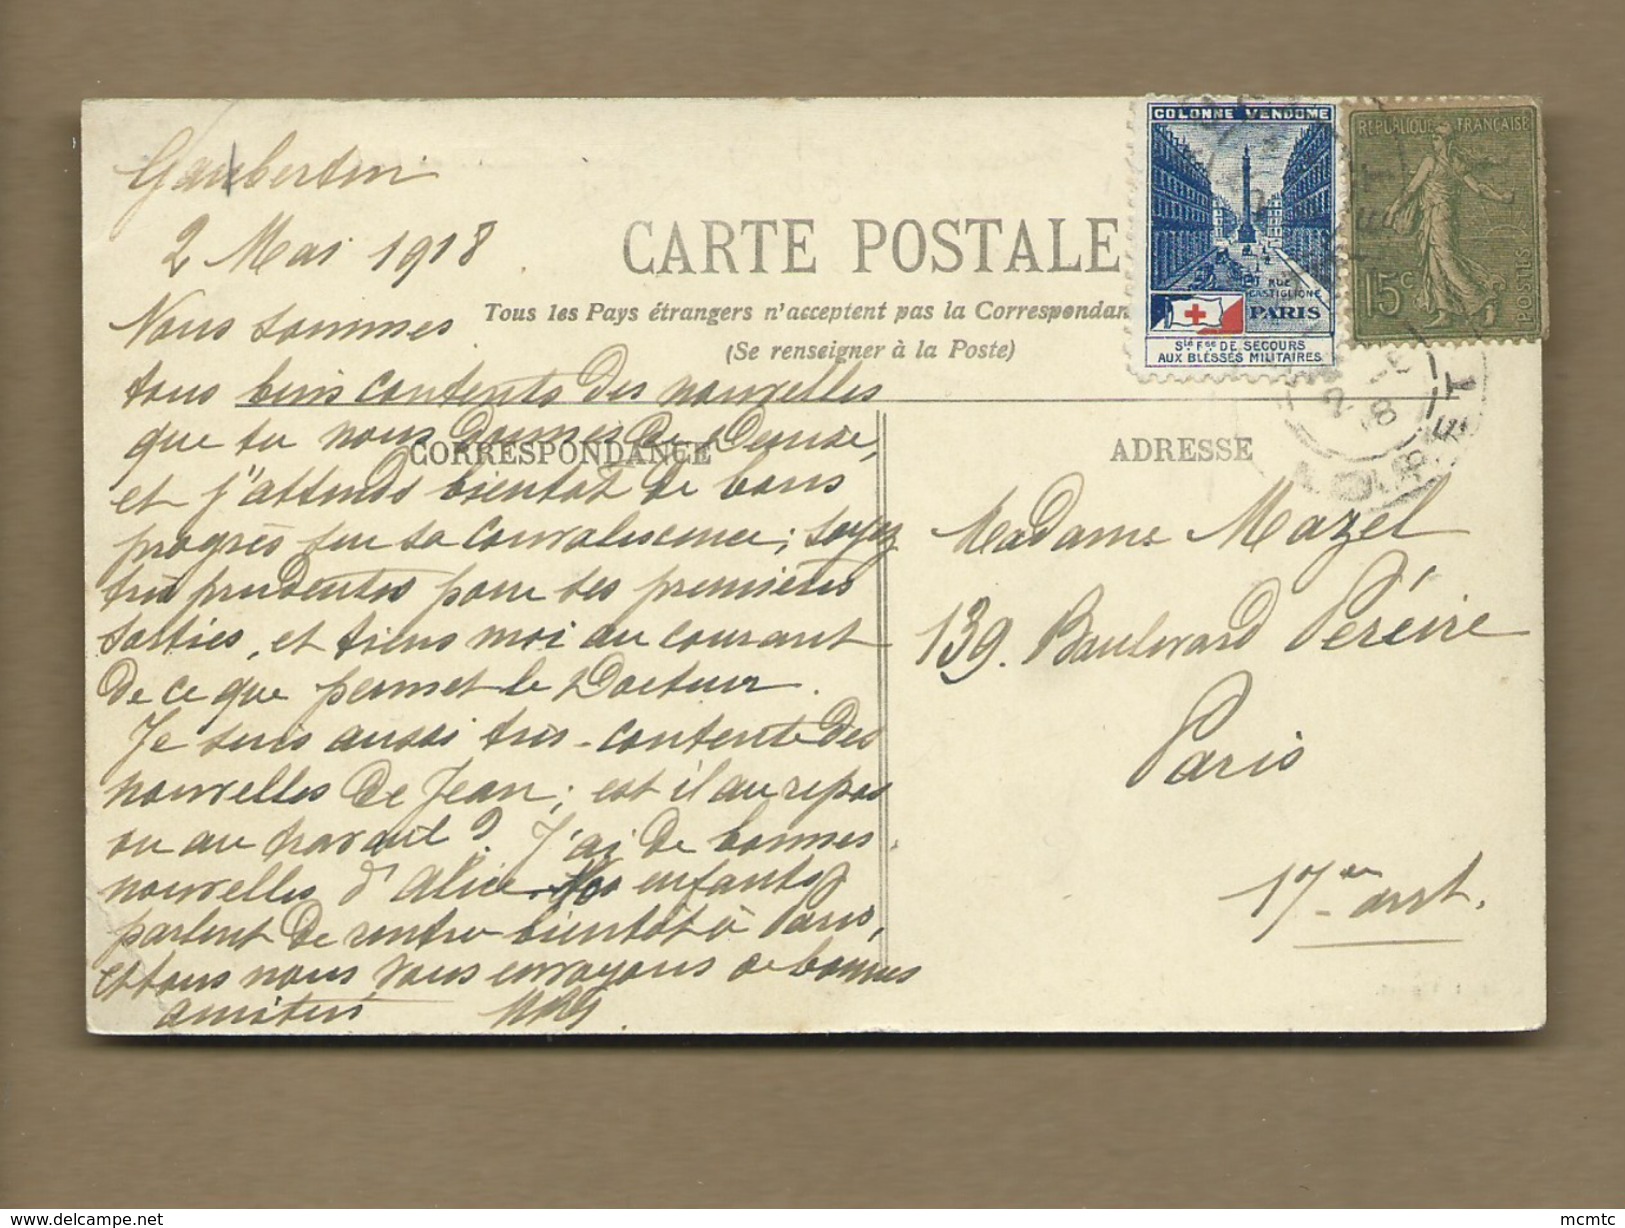 Gaubertin
2 Mai 1918
CARTE POSTALE
Tous les Pays étrangers n'acceptent pas la Correspondan
(Se renseigner à la Poste)
COLONNE VENDOME
RUE
CASTIGLIONE
PARIS
Sté Fse DE SECOURS
AUX BLESSÉS MILITAIRES
REPUBLIQUE FRANÇAISE
15c
POSTES
CORRESPONDANCE
ADRESSE
Nous sommes
tous bien contents des nouvelles
que tu nous donnes de Denise,
et j'attends bientôt de bons
progrès sur sa convalescence; soyez
très prudentes pour ses premières
sorties, et tiens moi au courant
de ce que permet le Docteur.
Je suis aussi très-contente des
nouvelles de Jean; est il au repos
ou au travail? J'ai de bonnes
nouvelles d'Alice. enfants
parlent de rentrer bientôt à Paris,
et tous nous vous envoyons de bonnes
amitiés
Madame Mazel
139. Boulevard Péreire
Paris
17 arrt.
mcmtc